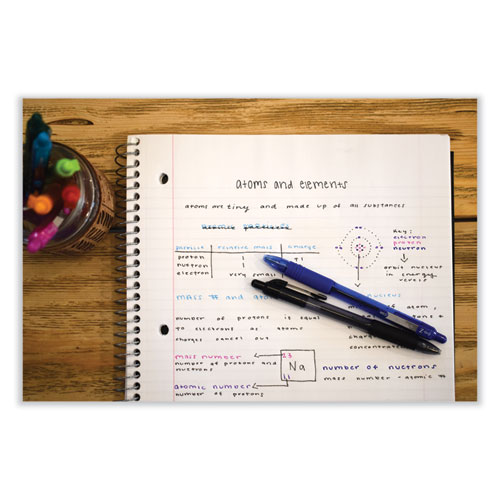 atoms and elements
atoms are tiny and made up of all substances
atomic particles
particle relative mass charge
proton 1 +1
neutron 1
electron very small
Key:
electron
proton
neutron
orbit nucleus
in energy
levels
mass # and atomic nucleus
number of protons is equal
to electrons so atomic
charges cancel out
atom,
charge
concentrated
mass number
number of protons and
neutrons
23
Na
11
atomic number
number of protons
number of neutrons
mass number - atomic #